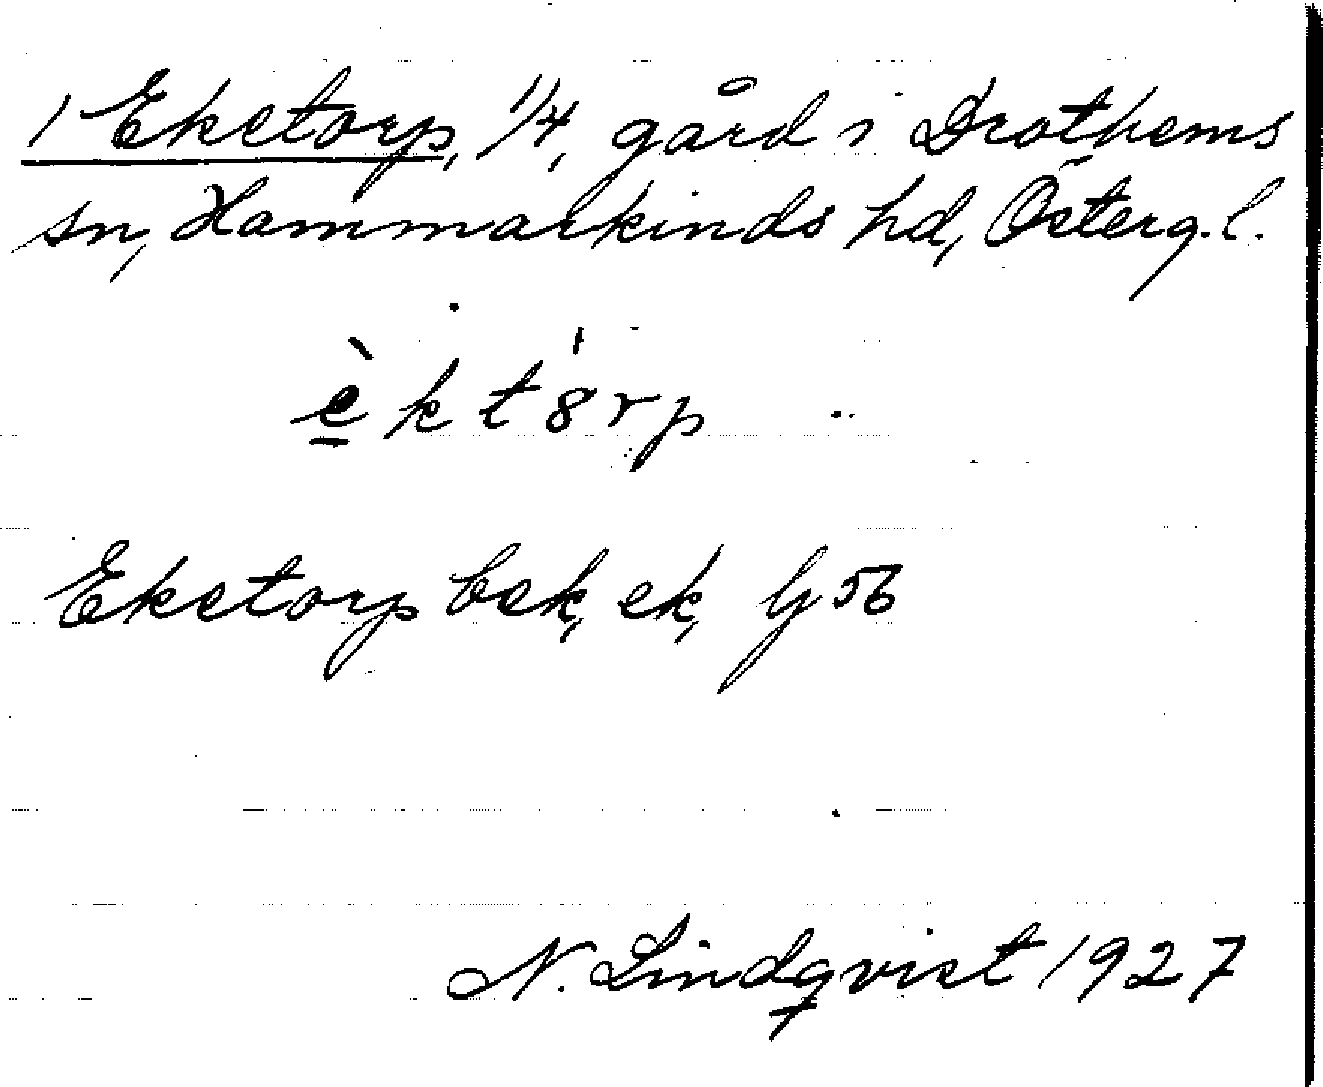 1 Eketorp, 1/4, gård i Drothems
sn, Hammarkinds hd, Österg.l.
è̱ k t 8́ r p
Eketorp bek, ek, G 56
N. Lindqvist 1927